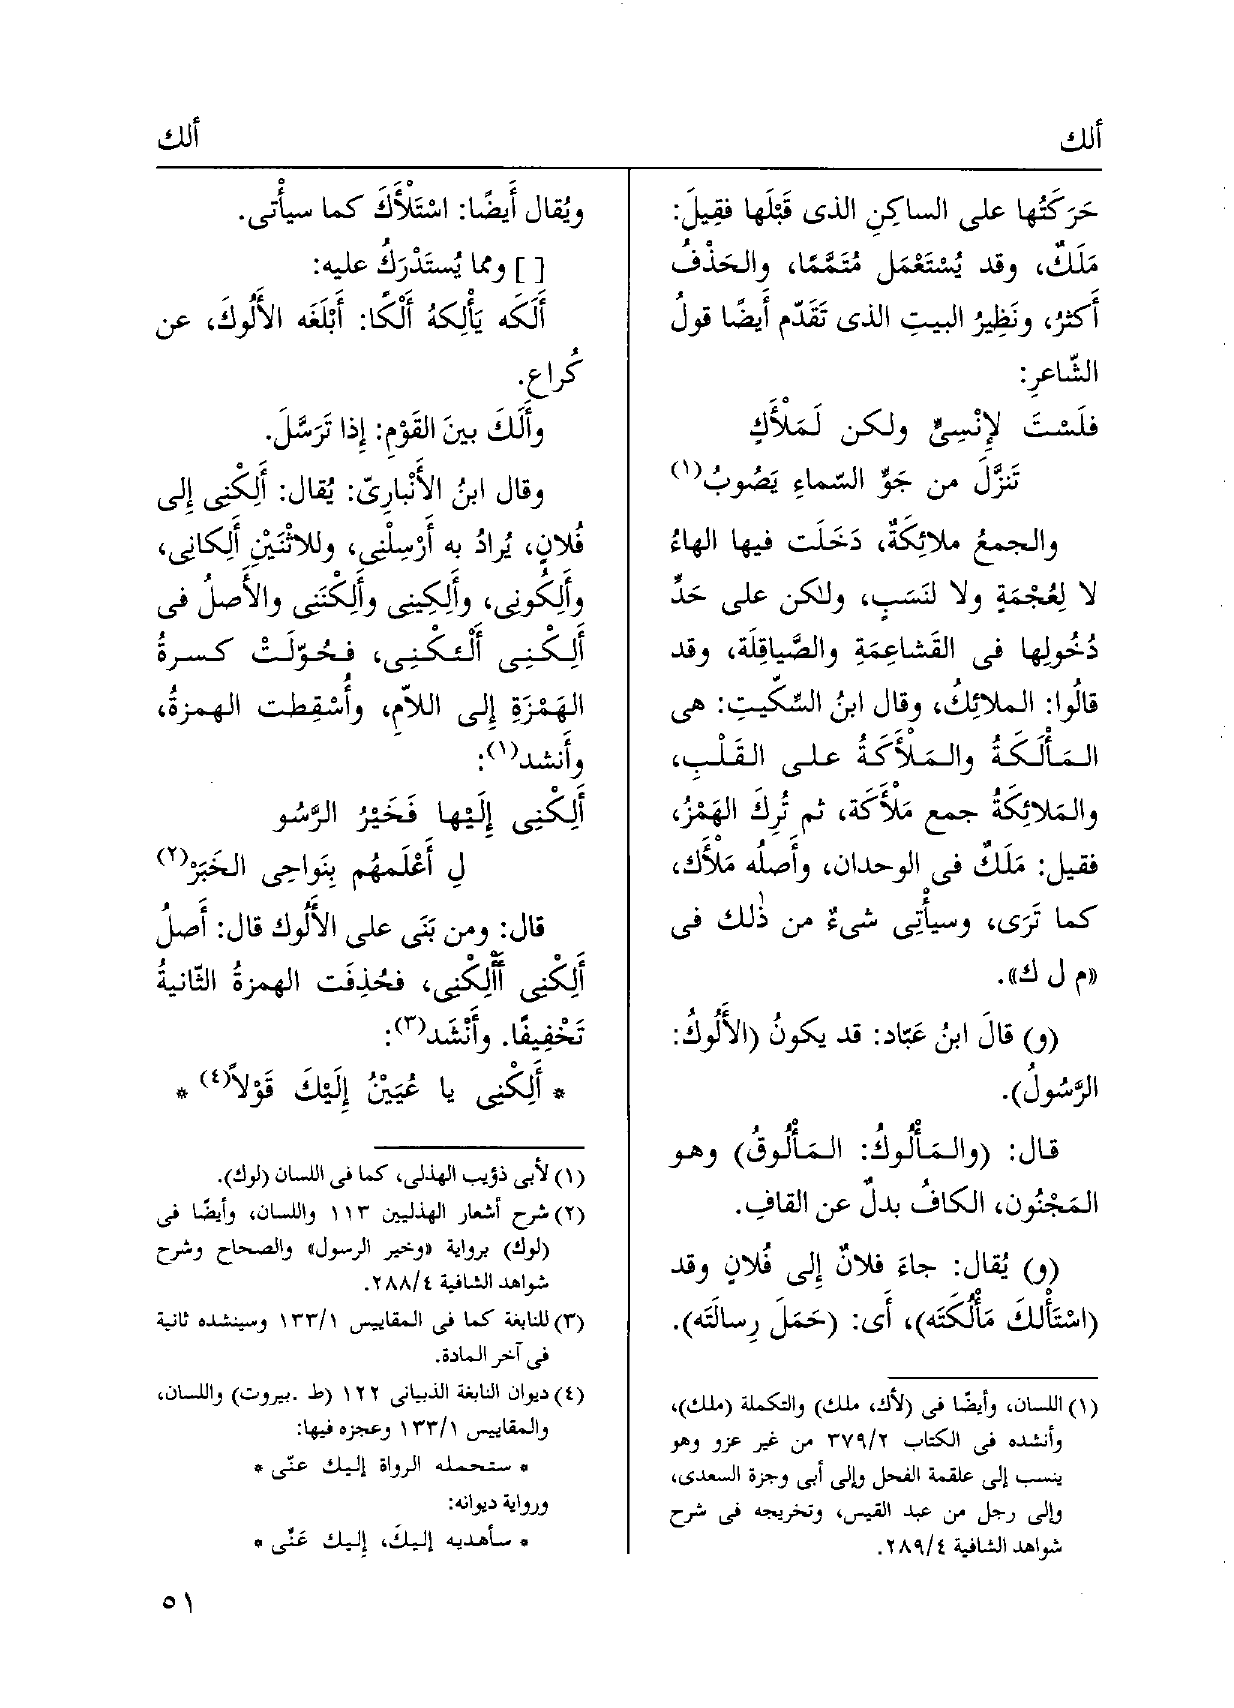 ألك
ألك
حَرَكَتُها على الساكِنِ الذى قَبْلَها فقِيلَ:
مَلَكٌ، وقد يُسْتَعْمَل مُتَمَّمًا، والحَذْفُ
أَكثرُ، ونَظِيرُ البيتِ الذى تَقَدّم أَيضًا قولُ
الشّاعرِ:
فلَسْتَ لإِنْسِىٍّ ولكن لَمَلْأَكٍ
تَنزَّلَ من جَوِّ السّماءِ يَصُوبُ(١)
والجمعُ ملائِكَةٌ، دَخَلَت فيها الهاءُ
لا لِعُجْمَةٍ ولا لنَسَبٍ، ولكن على حَدِّ
دُخُولِها فى القَشاعِمَةِ والصَّياقِلَة، وقد
قالُوا: الملائِكُ، وقال ابنُ السِّكِّيتِ: هى
المَأْلَكَةُ والمَلْأَكَةُ على القَلْبِ،
والمَلائِكَةُ جمع مَلْأَكَة، ثم تُرِكَ الهَمْزُ،
فقيل: مَلَكٌ فى الوحدان، وأَصلُه مَلْأَك،
كما تَرَى، وسيأْتِى شىءٌ من ذٰلك فى
«م ل ك».
(و) قالَ ابنُ عَبّاد: قد يكونُ (الأَلُوكُ:
الرَّسُولُ).
قال: (والمَأْلُوكُ: المَأْلُوقُ) وهو
المَجْنُون، الكافُ بدلٌ عن القافِ.
(و) يُقال: جاءَ فلانٌ إِلى فُلانٍ وقد
(اسْتَأْلَكَ مَأْلُكَتَه)، أَى: (حَمَلَ رِسالَتَه).
(١) اللسان، وأيضًا فى (لأك، ملك) والتكملة (ملك)،
وأنشده فى الكتاب ٣٧٩/٢ من غير عزو وهو
ينسب إلى علقمة الفحل وإلى أبى وجزة السعدى،
وإلى رجل من عبد القيس، وتخريجه فى شرح
شواهد الشافية ٢٨٩/٤.
ويُقال أَيضًا: اسْتَلْأَكَ كما سيأْتى.
[ ] ومما يُستَدْرَكُ عليه:
أَلَكَه يَأْلِكهُ أَلْكًا: أَبْلَغَه الأَلُوكَ، عن
كُراع.
وأَلَكَ بينَ القَوْمِ: إِذا تَرَسَّلَ.
وقال ابنُ الأَنْبارِىّ: يُقال: أَلِكْنِى إِلى
فُلانٍ، يُرادُ به أَرْسِلْنِى، وللاثْنَيْنِ أَلِكانِى،
وأَلِكُونِى، وأَلِكِينِى وأَلِكْنَنِى والأَصلُ فى
أَلِكْنِى أَلْئِكْنِى، فحُوّلَتْ كسرةُ
الهَمْزَةِ إِلى اللاّمِ، وأُسْقِطت الهمزةُ،
وأَنشد(١):
أَلِكْنِى إِلَيْها فَخَيْرُ الرَّسُو
لِ أَعْلَمهُم بِنَواحِى الخَبَرْ(٢)
قال: ومن بَنَى على الأَلُوك قال: أَصلُ
أَلِكْنِى أَأْلِكْنِى، فحُذِفَت الهمزةُ الثّانيةُ
تَخْفِيفًا. وأَنْشَد(٣):
* أَلِكْنِى يا عُيَيْنُ إِلَيْكَ قَوْلاً(٤) *
(١) لأبى ذؤيب الهذلى، كما فى اللسان (لوك).
(٢) شرح أشعار الهذليين ١١٣ واللسان، وأيضًا فى
(لوك) برواية «وخير الرسول» والصحاح وشرح
شواهد الشافية ٢٨٨/٤.
(٣) للنابغة كما فى المقاييس ١٣٣/١ وسينشده ثانية
فى آخر المادة.
(٤) ديوان النابغة الذبيانى ١٢٢ (ط .بيروت) واللسان،
والمقاييس ١٣٣/١ وعجزه فيها:
* ستحمله الرواة إليك عنّى *
ورواية ديوانه:
* سأهديه إليكَ، إليك عَنّى *
٥١